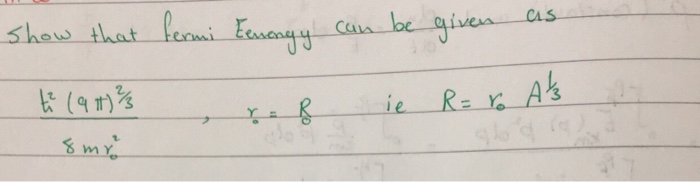 Show that fermi Eenengy can be given as
ħ² (9π)^2/3 / 8mr₀² , r₀ = R₀ ie R = r₀ A^1/3